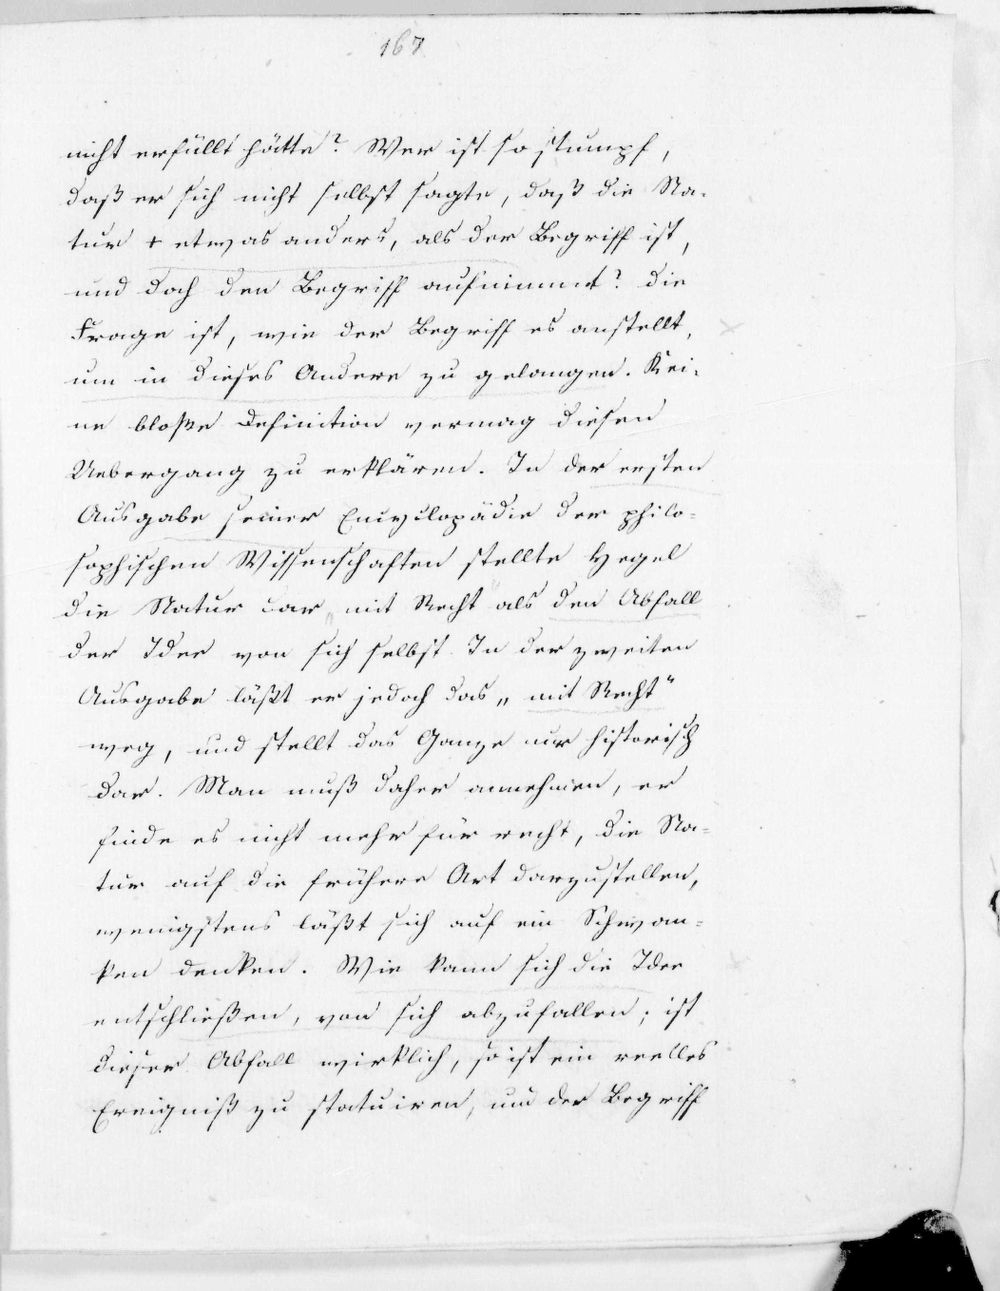 167
nicht erfüllt hätte? Wer ist so stumpf,
daß er sich nicht selbst sagte, daß die Na-
tur + etwas anders, als der Begriff ist,
und doch den Begriff aufnimmt? die
Frage ist, wie der Begriff es anstellt,
um in dieses Andere zu gelangen. Kei-
ne bloße Definition vermag diesen
Uebergang zu erklären. In der ersten
Ausgabe seiner Encyclopädie der philo-
sophischen Wissenschaften stellte Hegel
die Natur dar „mit Recht" als den Abfall
der Idee von sich selbst. In der zweiten
Ausgabe läßt er jedoch das „mit Recht"
weg, und stellt das Ganze nur historisch
dar. Man muß daher annehmen, er
finde es nicht mehr für recht, die Na-
tur auf die frühere Art darzustellen,
wenigstens läßt sich auf ein Schwan-
ken denken. Wie kann sich die Idee
entschließen, von sich abzufallen; ist
dieser Abfall wirklich, so ist ein reelles
Ereigniß zu statuiren, und der Begriff